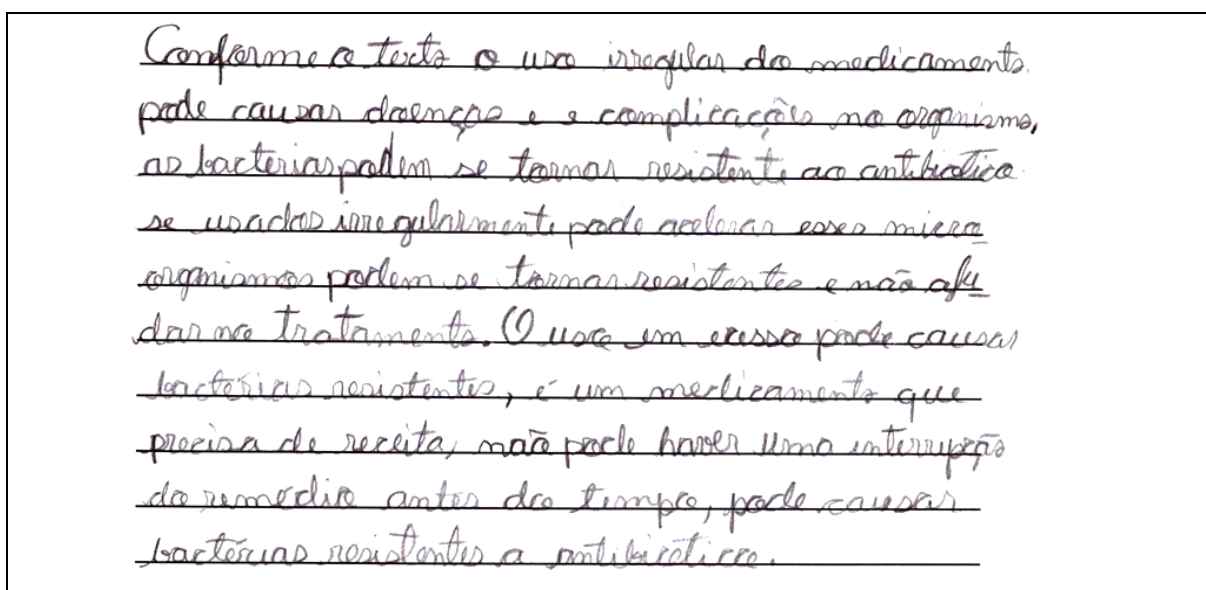 Conforme o texto o uso irregular do medicamento
pode causar doenças e e complicações no organismo,
as bacterias podem se tornar resistente ao antibiotico
se usados irregularmente pode acelerar esses micro
organismos podem se tornar resistentes e não aju
dar no tratamento. O uso em exesso pode causar
bactérias resistentes, é um medicamento que
precisa de receita, não pode haver uma interrupção
do remédio antes do tempo, pode causar
bactérias resistentes a antibiotico.